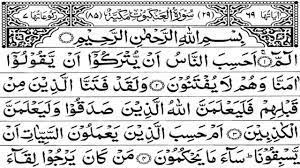 اياتها ٦٩ (٢٩) سُوْرَةُ الْعَنْكَبُوْتِ مَكِّيَّةٌ (٨٥) ركوعاتها ٧
بِسْمِ اللّٰهِ الرَّحْمٰنِ الرَّحِيْمِ
الٓمّٓ ۝١ اَحَسِبَ النَّاسُ اَنْ يُّتْرَكُوْٓا اَنْ يَّقُوْلُوْٓا
اٰمَنَّا وَهُمْ لَا يُفْتَنُوْنَ ۝٢ وَلَقَدْ فَتَنَّا الَّذِيْنَ مِنْ
قَبْلِهِمْ فَلَيَعْلَمَنَّ اللّٰهُ الَّذِيْنَ صَدَقُوْا وَلَيَعْلَمَنَّ
الْكٰذِبِيْنَ ۝٣ اَمْ حَسِبَ الَّذِيْنَ يَعْمَلُوْنَ السَّيِّاٰتِ اَنْ
يَّسْبِقُوْنَا ؕ سَآءَ مَا يَحْكُمُوْنَ ۝٤ مَنْ كَانَ يَرْجُوْا لِقَآءَ